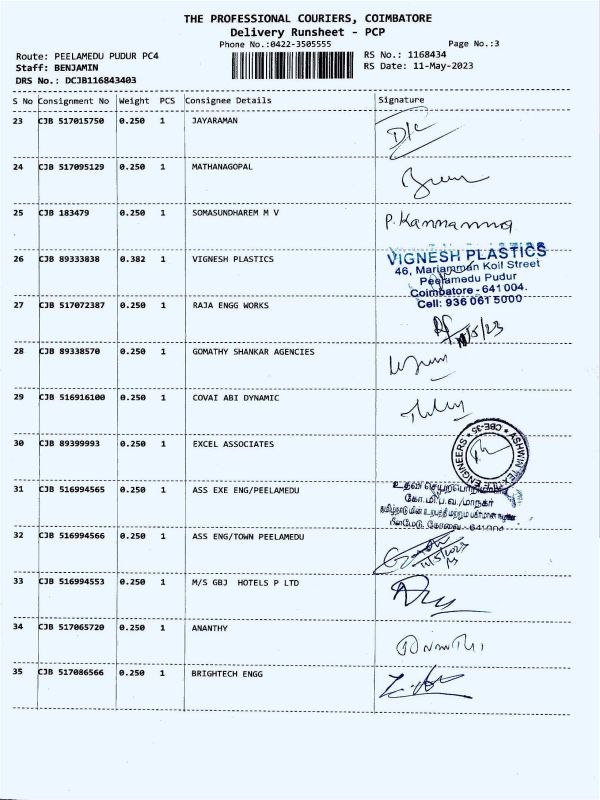 THE PROFESSIONAL COURIERS, COIMBATORE
Delivery Runsheet - PCP
Phone No.:0422-3505555
Page No.:3
Route: PEELAMEDU PUDUR PC4
RS No.: 1168434
Staff: BENJAMIN
RS Date: 11-May-2023
DRS No.: DCJB116843403
S No Consignment No Weight PCS Consignee Details Signature
23 CJB 517015750 0.250 1 JAYARAMAN
24 CJB 517095129 0.250 1 MATHANAGOPAL
25 CJB 183479 0.250 1 SOMASUNDHAREM M V
26 CJB 89333838 0.382 1 VIGNESH PLASTICS
VIGNESH PLASTICS
46, Mariamman Koil Street
Peelamedu Pudur
Coimbatore - 641 004.
Cell: 936 061 5000
27 CJB 517072387 0.250 1 RAJA ENGG WORKS
28 CJB 89338570 0.250 1 GOMATHY SHANKAR AGENCIES
29 CJB 516916100 0.250 1 COVAI ABI DYNAMIC
30 CJB 89399993 0.250 1 EXCEL ASSOCIATES
ASHWIN TEX ENGINEERS
CBE-35
31 CJB 516994565 0.250 1 ASS EXE ENG/PEELAMEDU
உதவி செயற்பொறியாளர்
கோ.மி.ப.வ./மாநகர்
பீளமேடு, கோவை - 641004
32 CJB 516994566 0.250 1 ASS ENG/TOWN PEELAMEDU
11/5/2023
33 CJB 516994553 0.250 1 M/S GBJ HOTELS P LTD
34 CJB 517065720 0.250 1 ANANTHY
35 CJB 517086566 0.250 1 BRIGHTECH ENGG